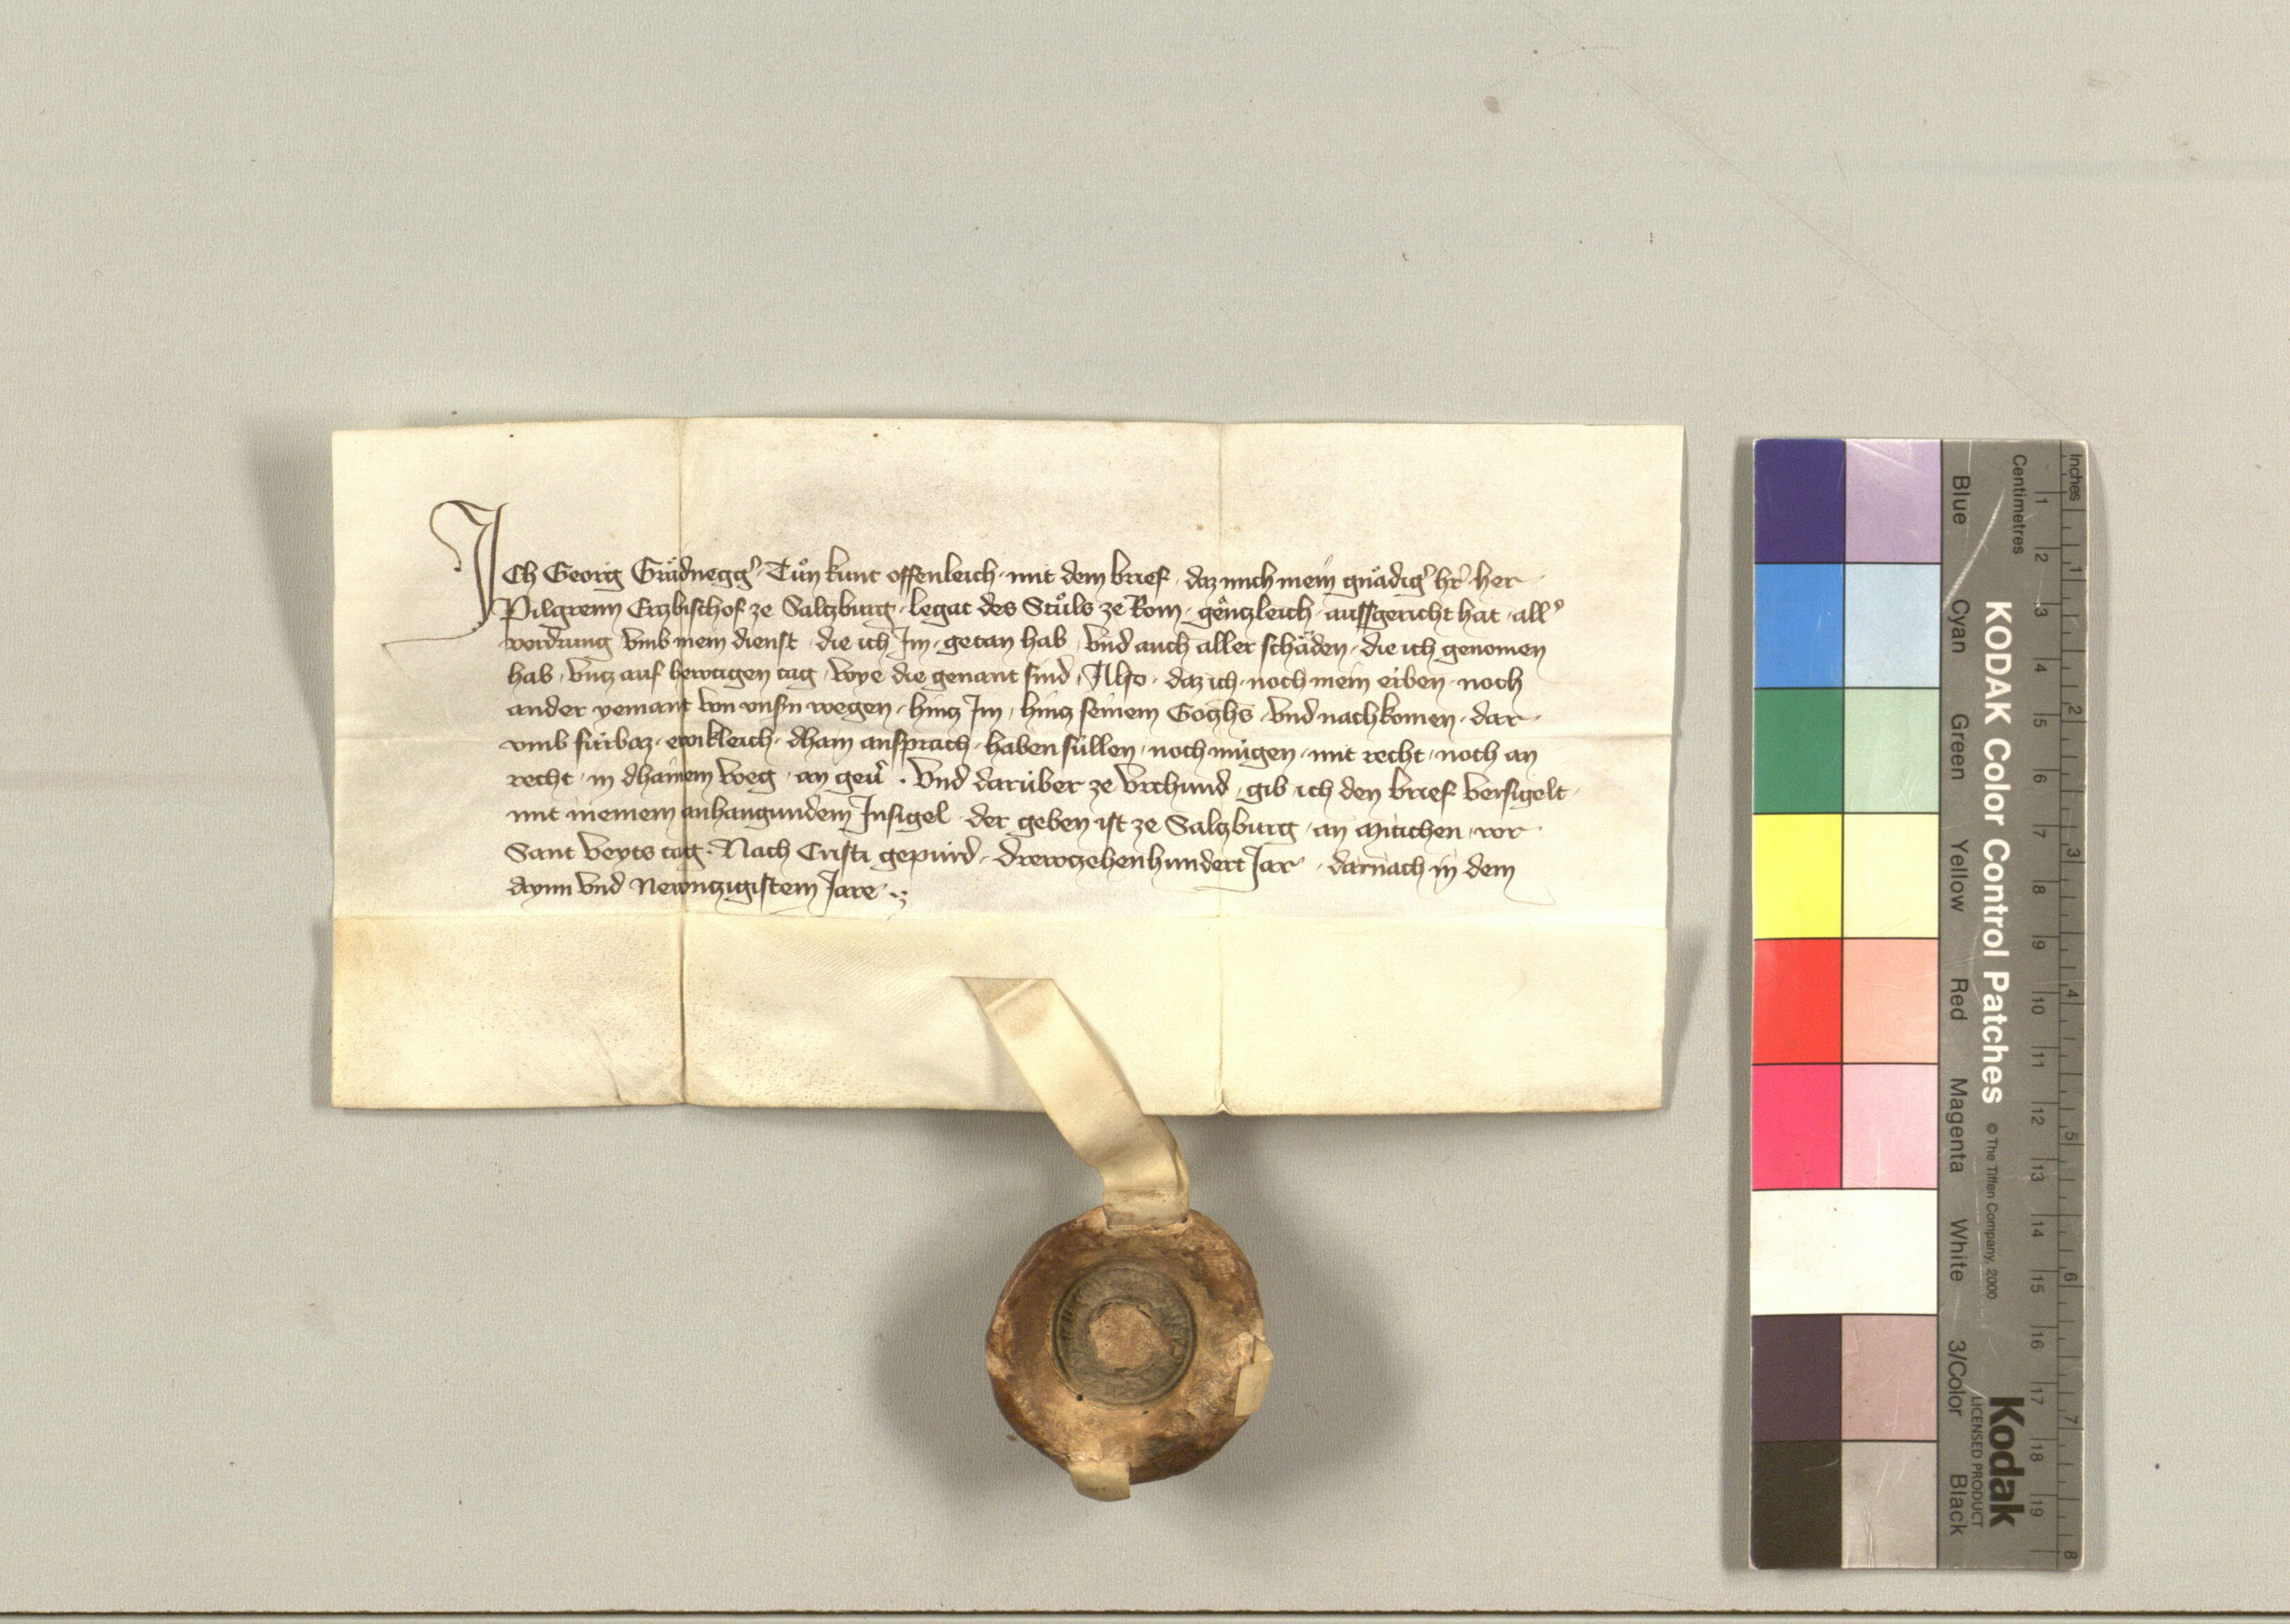 Ich Georig Grädnegg̉ Tůn kunt offenleich mit dem brief daz mich mein gnädig̉ hr̉ her
Pilgreim Erzbischof ze Salzburg legat des Stůls ze Rom gêntzleich aussgericht hat all̉
vordrung vmb mein dienst die ich Im getan hab vnd auch aller schäden die ich genomen
hab vntz auf hewtigen tag wye die genant sind Also daz ich noch mein eriben noch
ander yemant von vnsn̉ wegen hintz Im hintz seinem Gotzhs vnd nachkomen dar
vmb fürbaz ewikleich dhain ansprach haben süllen noch mügen mit recht noch an
recht in dhainem weg an geu̓ . Vnd darüber ze vrchund gib ich den brief versigelt
mit meinem anhangundem Insigel der geben ist ze Salzburg an Mitichen vor
Sant Veyts tag. Nach Cristi gepürd drewzehenhundert Jar darnach in dem
aynn vnd Newntzigistem Jare
KODAK Color Control Patches © The Tiffen Company, 2000
Kodak
LICENSED PRODUCT
Blue Cyan Green Yellow Red Magenta White 3/Color Black
Centimetres 1 2 3 4 5 6 7 8 9 10 11 12 13 14 15 16 17 18 19
Inches 1 2 3 4 5 6 7 8